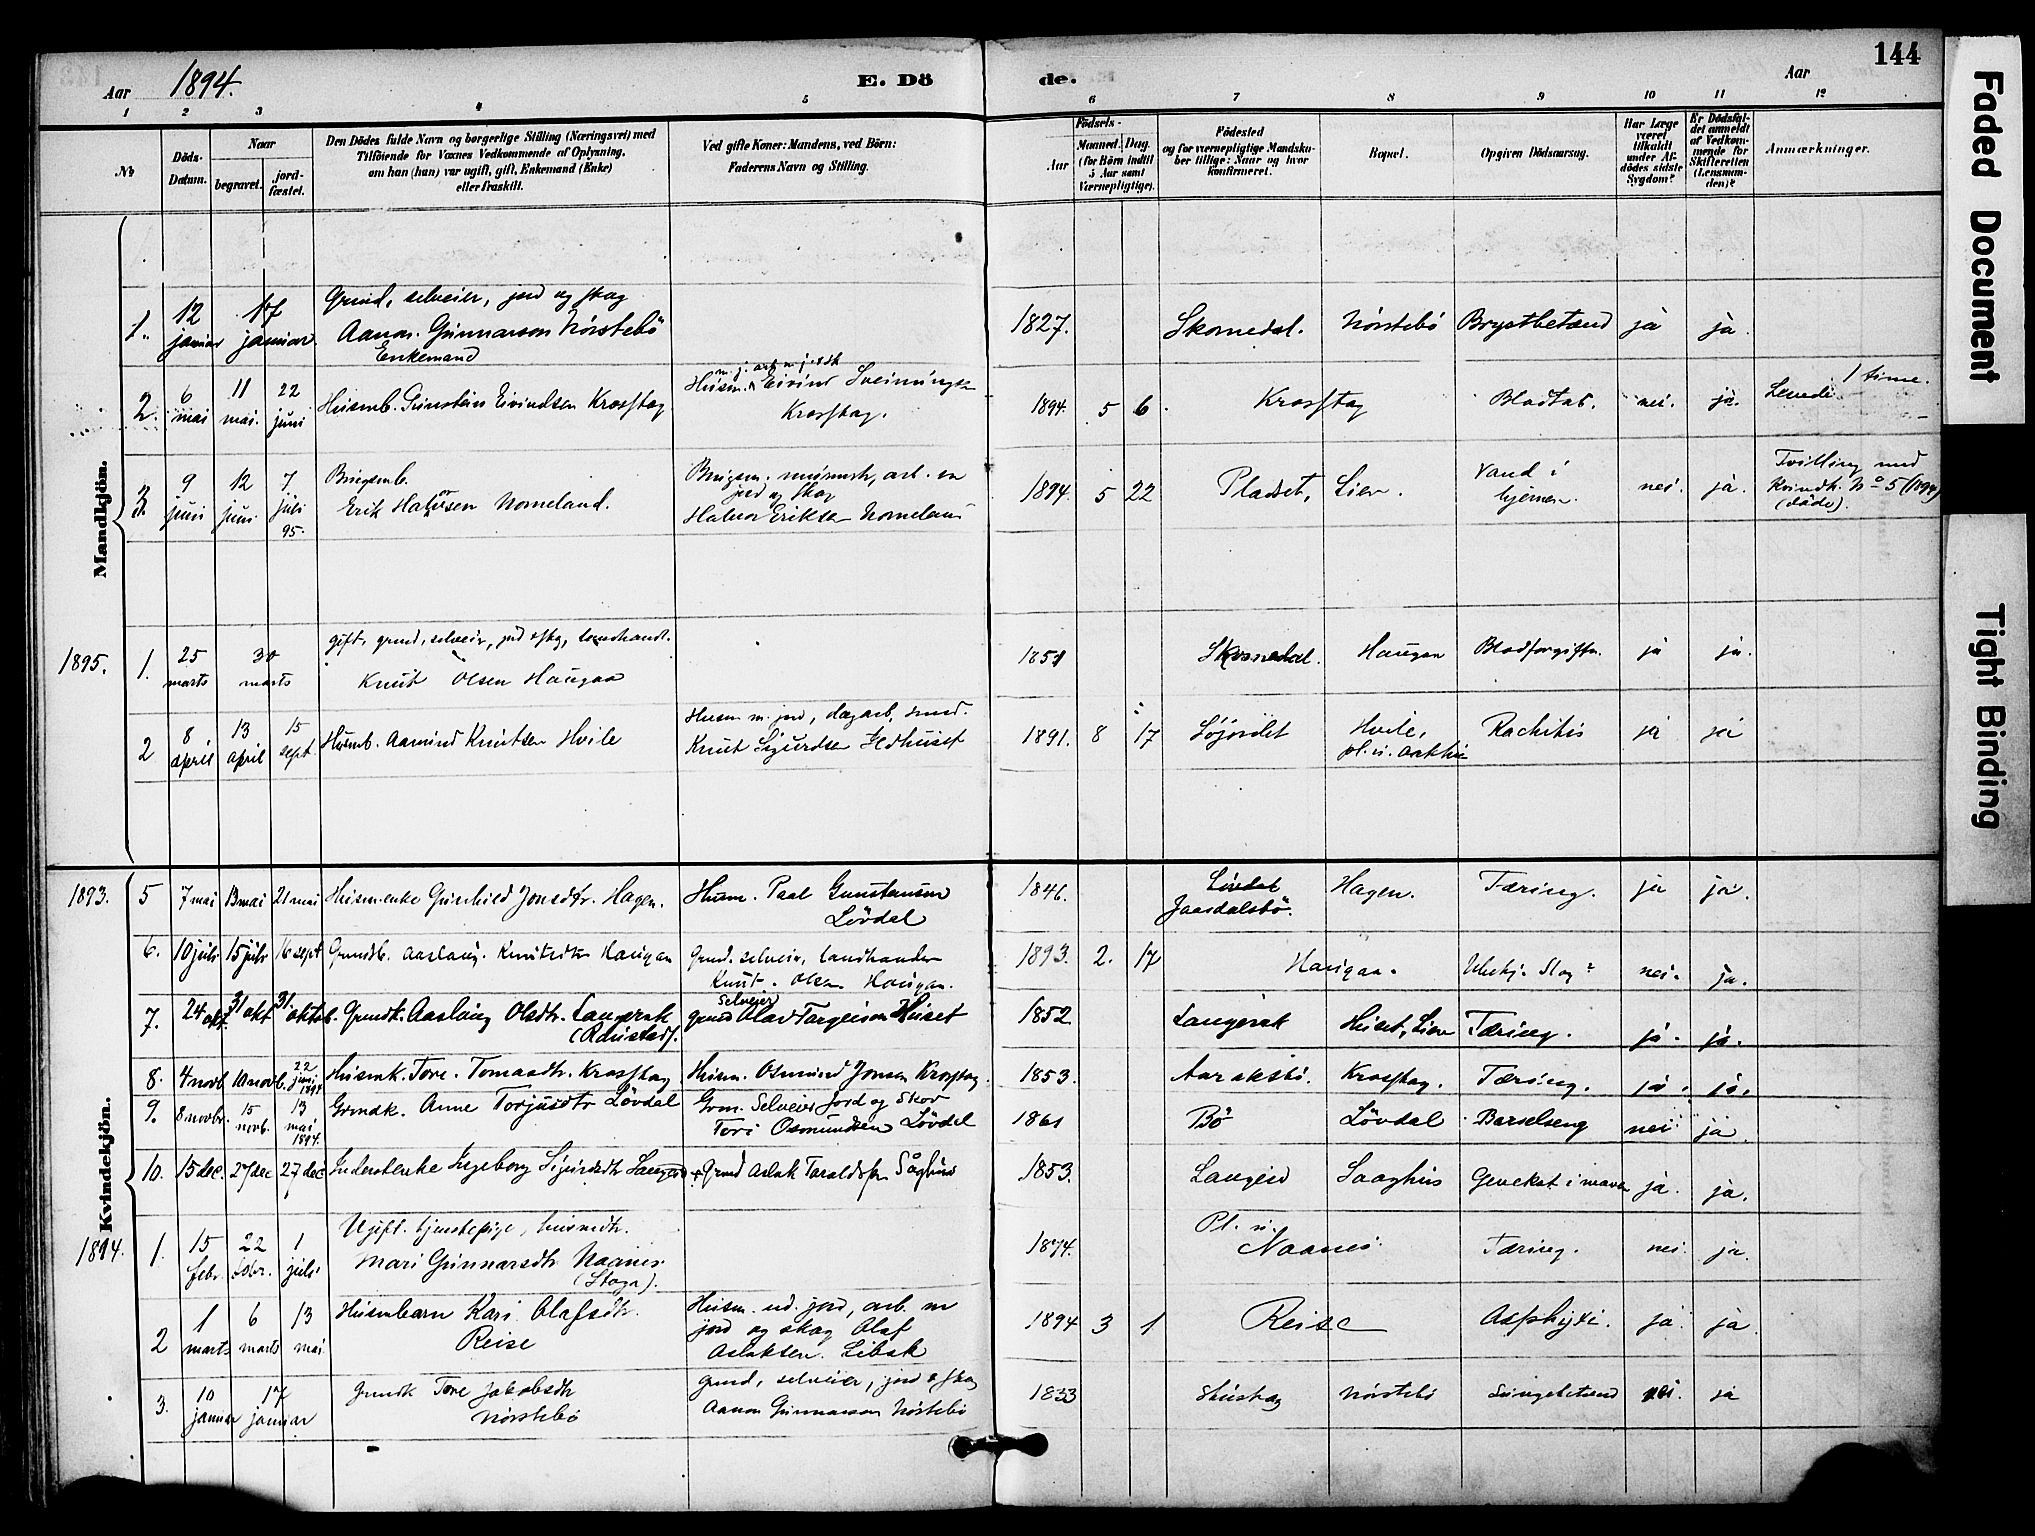 Aar 1894. E. Dö de. Aar 144
1 2 3 4 5 6 7 8 9 10 11 12
No
Döds-Datum.
Naar
begravet.
jord-fæstet.
Den Dödes fulde Navn og borgerlige Stilling (Næringsvei) med
Tilföiende for Voxnes Vedkommende af Oplysning,
om han (hun) var ugift, gift, Enkemand (Enke)
eller fraskilt.
Ved gifte Koner: Mandens, ved Börn:
Faderens Navn og Stilling.
Födsels-
Aar
Maaned. Dag.
(for Börn indtil
5 Aar samt
Værnepligtige).
Födested
og for værnepligtige Mandska-
ber tillige: Naar og hvor
konfirmeret.
Bopæl.
Opgiven Dödsaarsag.
Har Læge
været
tilkaldt
under Af-
dödes sidste
Sygdom?
Er Dödsfal-
det anmeldt
af Vedkom-
mende for
Skifteretten
(Lensman-
den)?
Anmærkninger.
Mandkjön.
Grund, selveier, jord og skog
1. 12 januar 17 januar. Aanon Gunnarson Nórstebö 1827. Skomedal. Nórstebö Brystbetænd ja ja.
Enkemand
2. 6 mai 11 mai. 22 juni Husmb. Gunstein Eivindsen Krossstog Husm. Eivind Sveinungsen Krossstog. 1894. 5 6 Krossstog Blodtab. nei. ja. Levede 1 time.
3. 9 juni 12 juni. 7 juli 95. Brugsmb. Erik Halvorsen Nomeland. Halvor Eriksen Nomeland 1894. 5 22 Pladset, Lien. Vand i hjernen. nei. ja. Tvilling med Kvindk. No 5 (1894) (döde).
gift, grund, selveier, jord & skog, landhandl.
1895. 1. 25 marts 30 marts Knut Olsen Haugaa 1851 Skomedal. Haugaa Blodforgiftn. ja ja.
2 8 april 13 april 15 sept Husmb. Aamund Knutsen Hvile Husm m. jord, dagarb, smed. Knut Sigurdsen Ildhuset 1891. 8 17 Hvile, Rachitis ja ja
Kvindekjön.
1893. 5 7 mai 13 mai 21 mai Husm.enke Gunhild Jonsdtr. Hagen. Husm. Paal Lövdal 1846. Hagen. Tæring. ja ja.
6. 10 juli 15 juli 16 sept Grundb. Aaslaug Knutsdtr Haugaa Grund. selveier, landhandler Knut Olsen Haugaa. 1893. 2. 17 Haugaa. nei. ja.
7. 24 okt. 31 okt 31. oktob. Grundk. Aaslaug Olsdtr. Langerak Grund selveier Olav Targeison Huset 1852 Langerak Huset, Lien Tæring. ja. ja.
8. 4 novb. 10 novb. 22 juni 1894 Husmk. Tore Tomasdtr. Krossstog Husm. Osmund Jonsen Krossstog. 1853. Aaraksbö. Krossstog. Tæring. ja. ja.
9. 8 novbr. 15 novb. 13 mai 1894. Grmdk. Anne Torjusdtr Lövdal Grm. Selveier Jord og Skov Tori Osmundsen Lövdal 1861 Bö Lövdal Barselseng nei ja.
10. 15 dec. 27 dec 27 dec Inderstenke Ingeborg Sigurdsdtr Langeid Grund Aslak Taraldsen Sôghus 1853. Langeid Saaghus ja. ja.
1894. 1. 15 febr. 22 febr. 1 juli Ugift. tjenestepige, husmdtr. Mari Gunnarsdtr Naanes (Stoga). 1874. Pl. u. Naanes. Tæring. nei. ja.
2 1 marts 6 marts 13 mai Husmbarn Kari Olafsdtr. Reise Husm. ud. jord, arb. m jord og skog Olaf Aslaksen Libek 1894 3 1 Reise ja. ja.
3. 10 januar 17 januar Grundk Tore Jakobsdtr Nórstebö Grund, selveier, jord & skog Aanon Gunnarson Nórstebö 1833 Nórstebö Lungebetænd nei. ja
Faded Document
Tight Binding